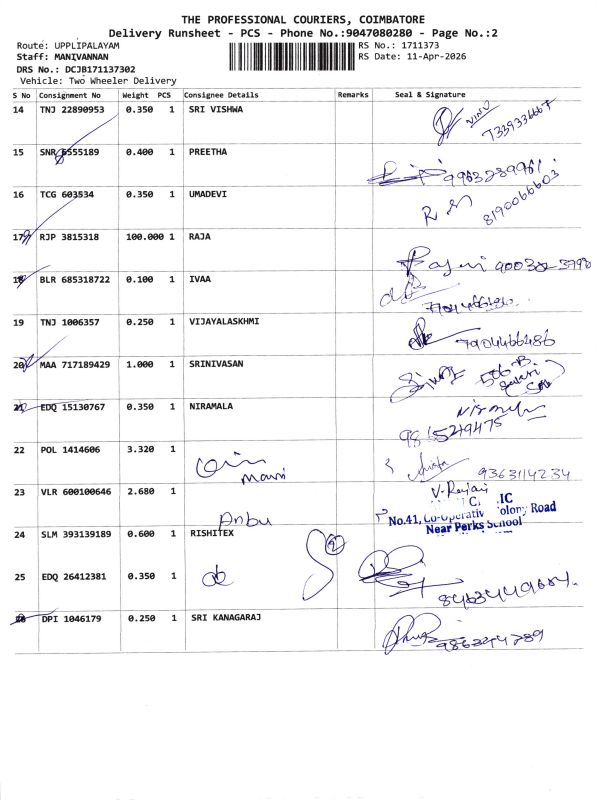 THE PROFESSIONAL COURIERS, COIMBATORE
Delivery Runsheet - PCS - Phone No.:9047080280 - Page No.:2
Route: UPPLIPALAYAM RS No.: 1711373
Staff: MANIVANNAN RS Date: 11-Apr-2026
DRS No.: DCJB171137302
Vehicle: Two Wheeler Delivery
S No Consignment No Weight PCS Consignee Details Remarks Seal & Signature
14 TNJ 22890953 0.350 1 SRI VISHWA
VINU
7339336667
15 SNR 6555189 0.400 1 PREETHA
9963239961
16 TCG 603534 0.350 1 UMADEVI
8190066603
17 RJP 3815318 100.000 1 RAJA
18 BLR 685318722 0.100 1 IVAA
19 TNJ 1006357 0.250 1 VIJAYALASKHMI
7904466486
20 MAA 717189429 1.000 1 SRINIVASAN
21 EDQ 15130767 0.350 1 NIRAMALA
9865249475
22 POL 1414606 3.320 1
Mani
9363114234
23 VLR 600100646 2.680 1
Anbu
No.41, Co-Operative Colony Road
Near Perks School
24 SLM 393139189 0.600 1 RISHITEX
2
25 EDQ 26412381 0.350 1
26 DPI 1046179 0.250 1 SRI KANAGARAJ